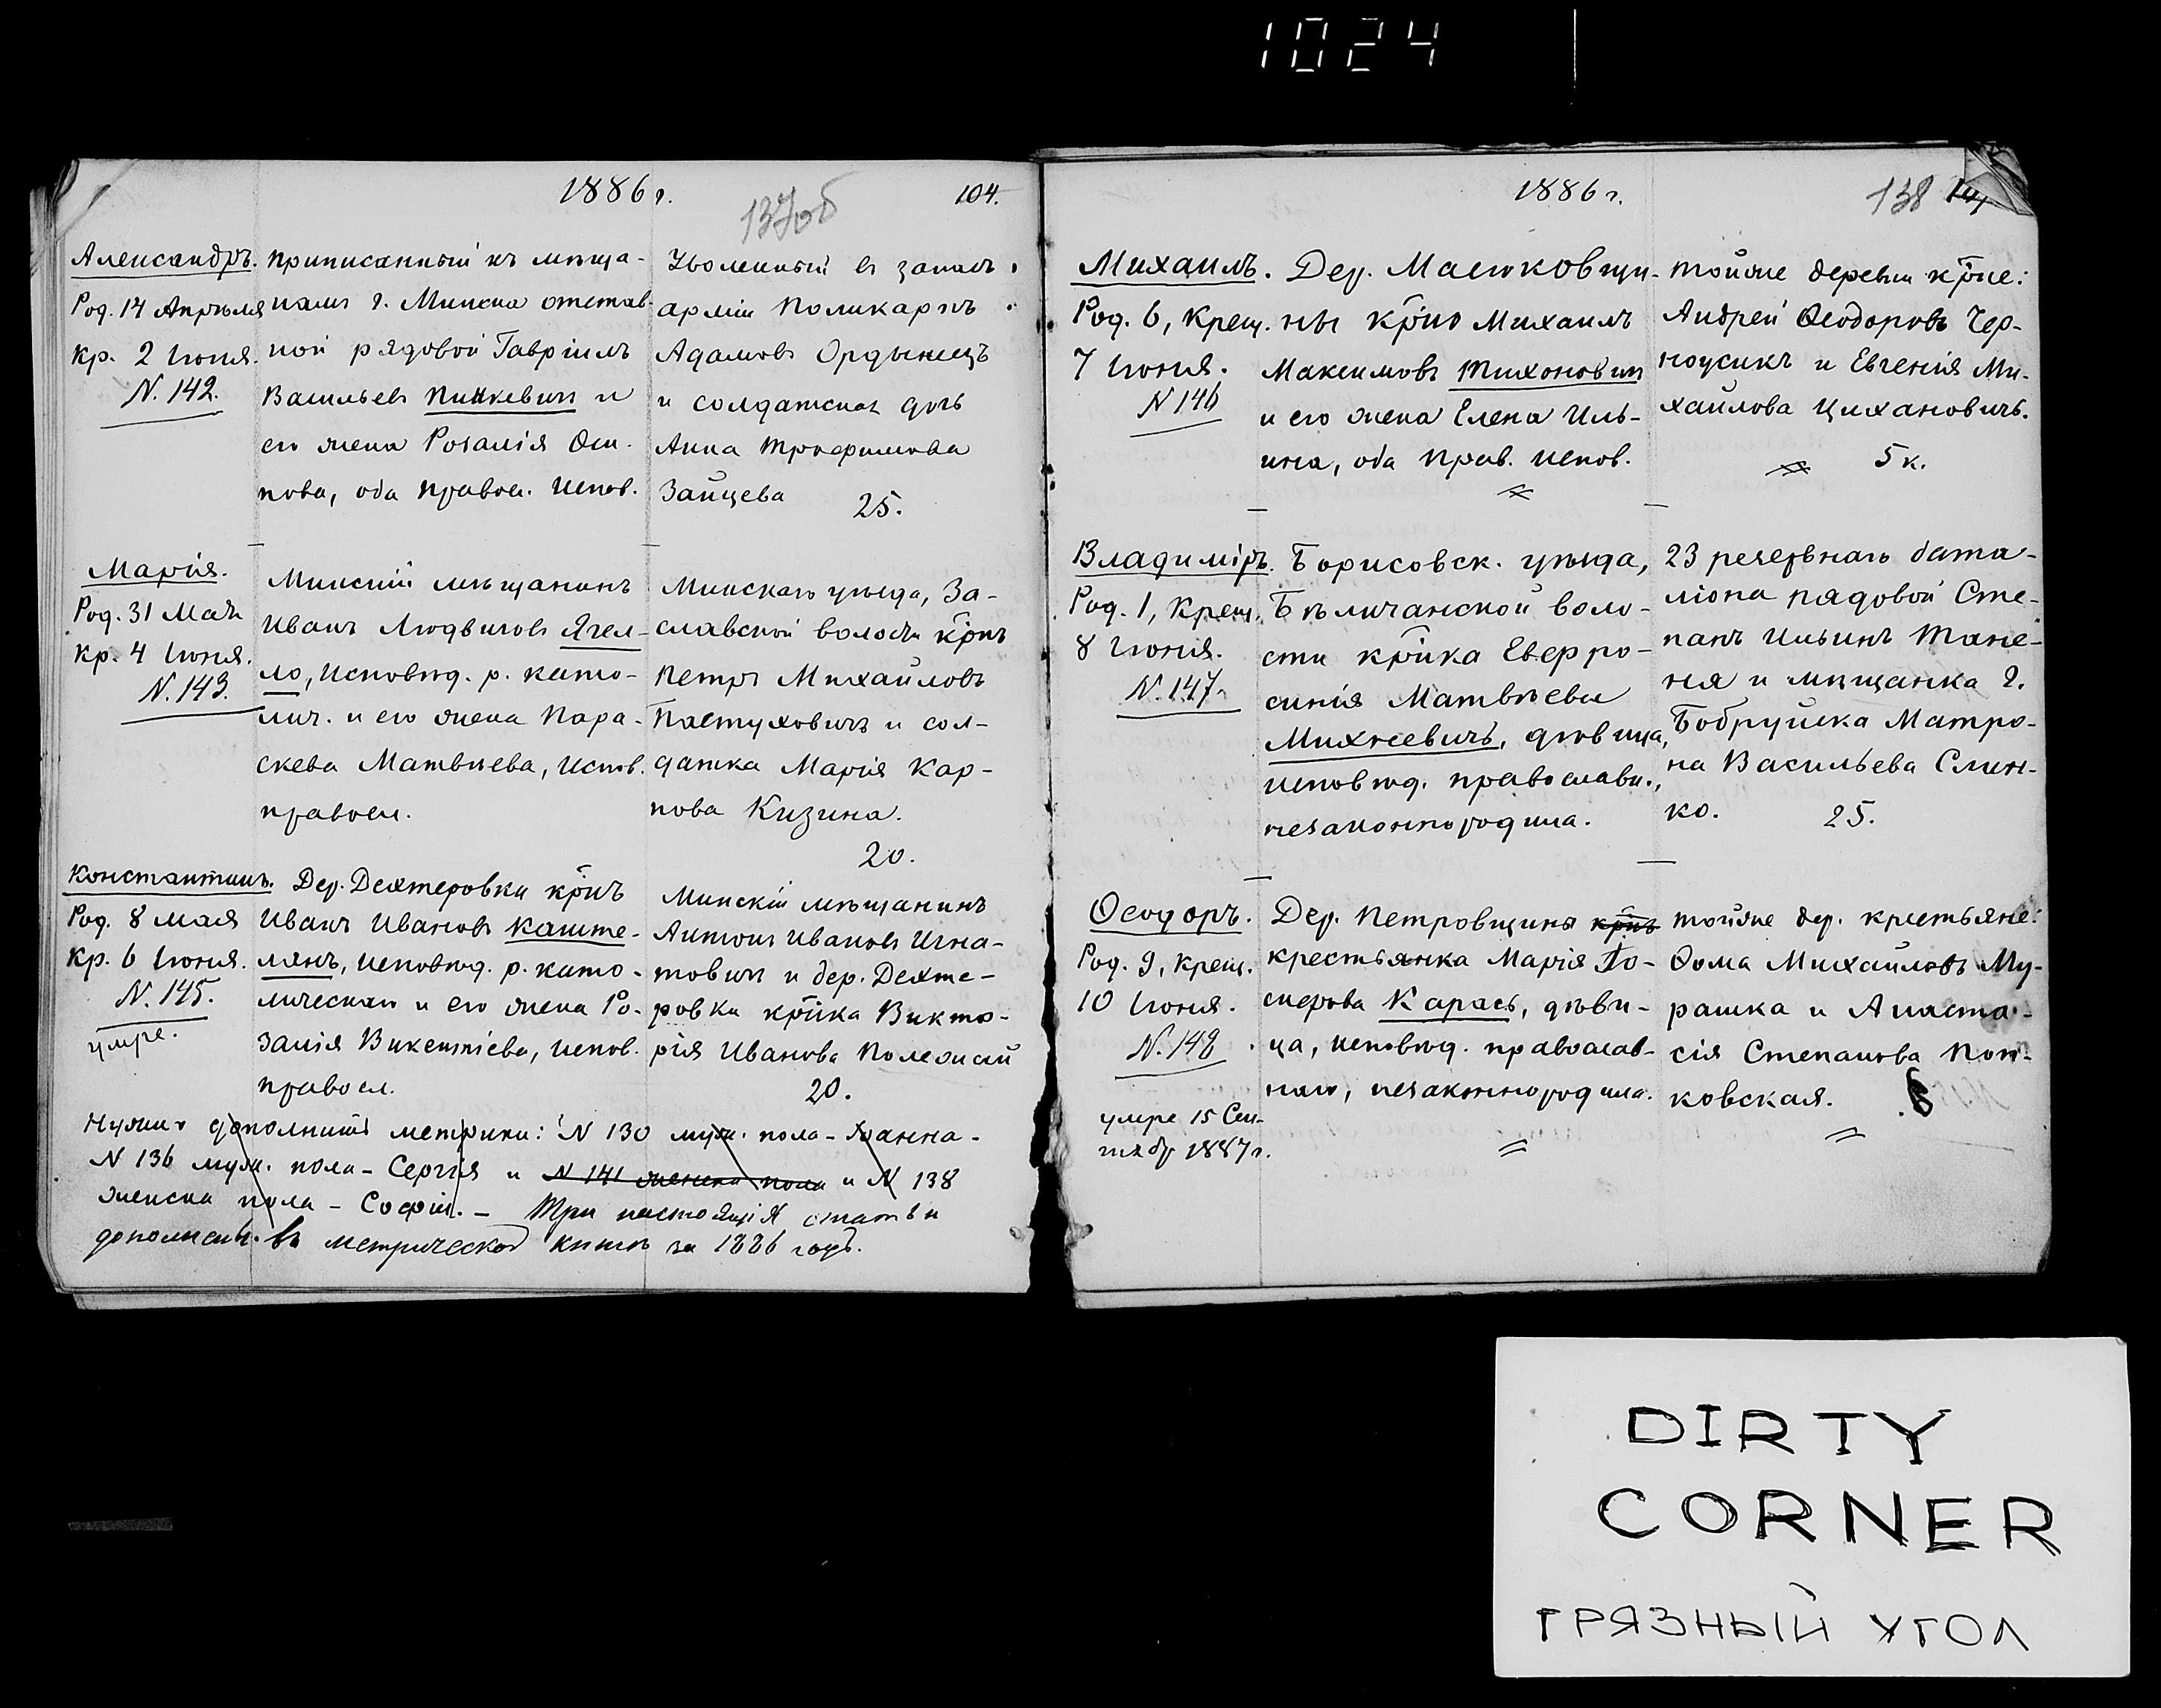 1024
1886 г.
137об
104.
Александръ.
Род. 14 Апрѣля
кр. 2 Іюня.
N. 142.
приписанный къ мѣща-
намъ г. Минска отстав-
ной рядовой Гавріилъ
Васильевъ Пинкевичъ и
его жена Розалія Оси-
пова, оба правосл. испов.
Уволенный въ запасъ
арміи Поликарпъ
Адамовъ Ордынецъ
и солдатская дочь
Анна Трофимова
Зайцева 25.
Марія.
Род. 31 Мая
кр. 4 Іюня.
N. 143.
Минскій мѣщанинъ
Иванъ Людвиговъ Ягел-
ло, исповѣд. р. като-
лич. и его жена Пара-
скева Матвѣева, испов.
правосл.
Минскаго уѣзда, За-
славской волости кр̃нъ
Петръ Михайловъ
Пастуховичъ и сол-
датка Марія Кар-
пова Кизина.
20.
Константинъ.
Род. 8 мая
кр. 6 Іюня.
N. 145.
умре.
Дер. Дехтеровки кр̃нъ
Иванъ Ивановъ Каште-
лянъ, исповѣд. р. като-
лическаго и его жена Ро-
залія Викентіева, испов.
правосл.
Минскій мѣщанинъ
Антонъ Ивановъ Игна-
товичъ и дер. Дехте-
ровки кр̃нка Викто-
рія Иванова
20.
Нужно дополнить метрики: N 130 муж. пола - Іоанна -
N 136 муж. пола - Сергія и N 141 женска пола и N 138
женска пола - Софіи. - Три настоящія статьи
дополнены въ метрической книгѣ за 1886 годъ.
1886 г.
138
Михаилъ.
Род. 6, Крещ.
7 Іюня.
N 146
Дер. Масюковщи-
ны кр̃нъ Михаилъ
Максимовъ Тихоновичъ
и его жена Елена Иль-
ина, оба прав. испов.
тойже деревни кр̃не:
Андрей Ѳеодоровъ Чер-
ноусикъ и Евгенія Ми-
хайлова Цихановичъ.
5 к.
Владиміръ.
Род. 1, Крещ.
8 Іюня.
N. 147.
Борисовск. уѣзда,
Бѣличанской воло-
сти кр̃нка Евфро-
синія Матвѣева
Михневичъ, дѣвица,
исповѣд. православн.,
незаконнородила.
23 резервнаго бата-
ліона рядовой Сте-
панъ Ильинъ Тане-
ня и мѣщанка г.
Бобруйска Матро-
на Васильева Слин-
ко. 25.
Ѳеодоръ.
Род. 9, Крещ.
10 Іюня.
N. 148
умре 15 Сен-
тябр 1887 г.
Дер. Петровщины кр̃нъ
крестьянка Марія Іо-
сифова Карась, дѣви-
ца, исповѣд. православ-
наго, незаконнородила.
тойже дер. крестьяне:
Ѳома Михайловъ Му-
рашка и Анаста-
сія Степанова
ковская.
DIRTY
CORNER
ГРЯЗНЫЙ УГОЛ